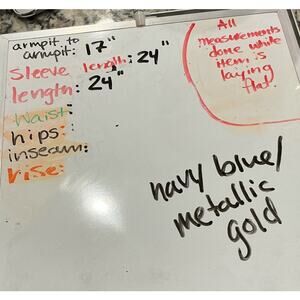 armpit to
armpit: 17"
sleeve
length: 24"
length: 24"
waist:
hips:
inseam:
rise:
All
measurements
done while
item is
laying
flat.
navy blue/
metallic
gold